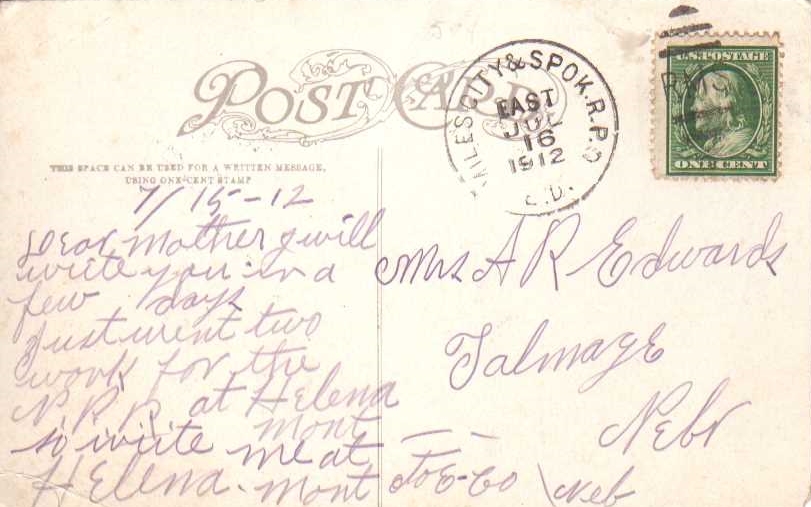 POST CARD
THIS SPACE CAN BE USED FOR A WRITTEN MESSAGE,
USING ONE-CENT STAMP
7/15-12
Dear Mother I will
write you in a
few days
Just went two
work for the
N.P.R.R. at Helena
Mont
so write me at
Helena. Mont
Mrs A R Edwards
Talmage
Nebr
Neb
MILES CITY & SPOK. R.P.O.
EAST
JUL
16
1912
R.M.S
U.S. POSTAGE
ONE CENT